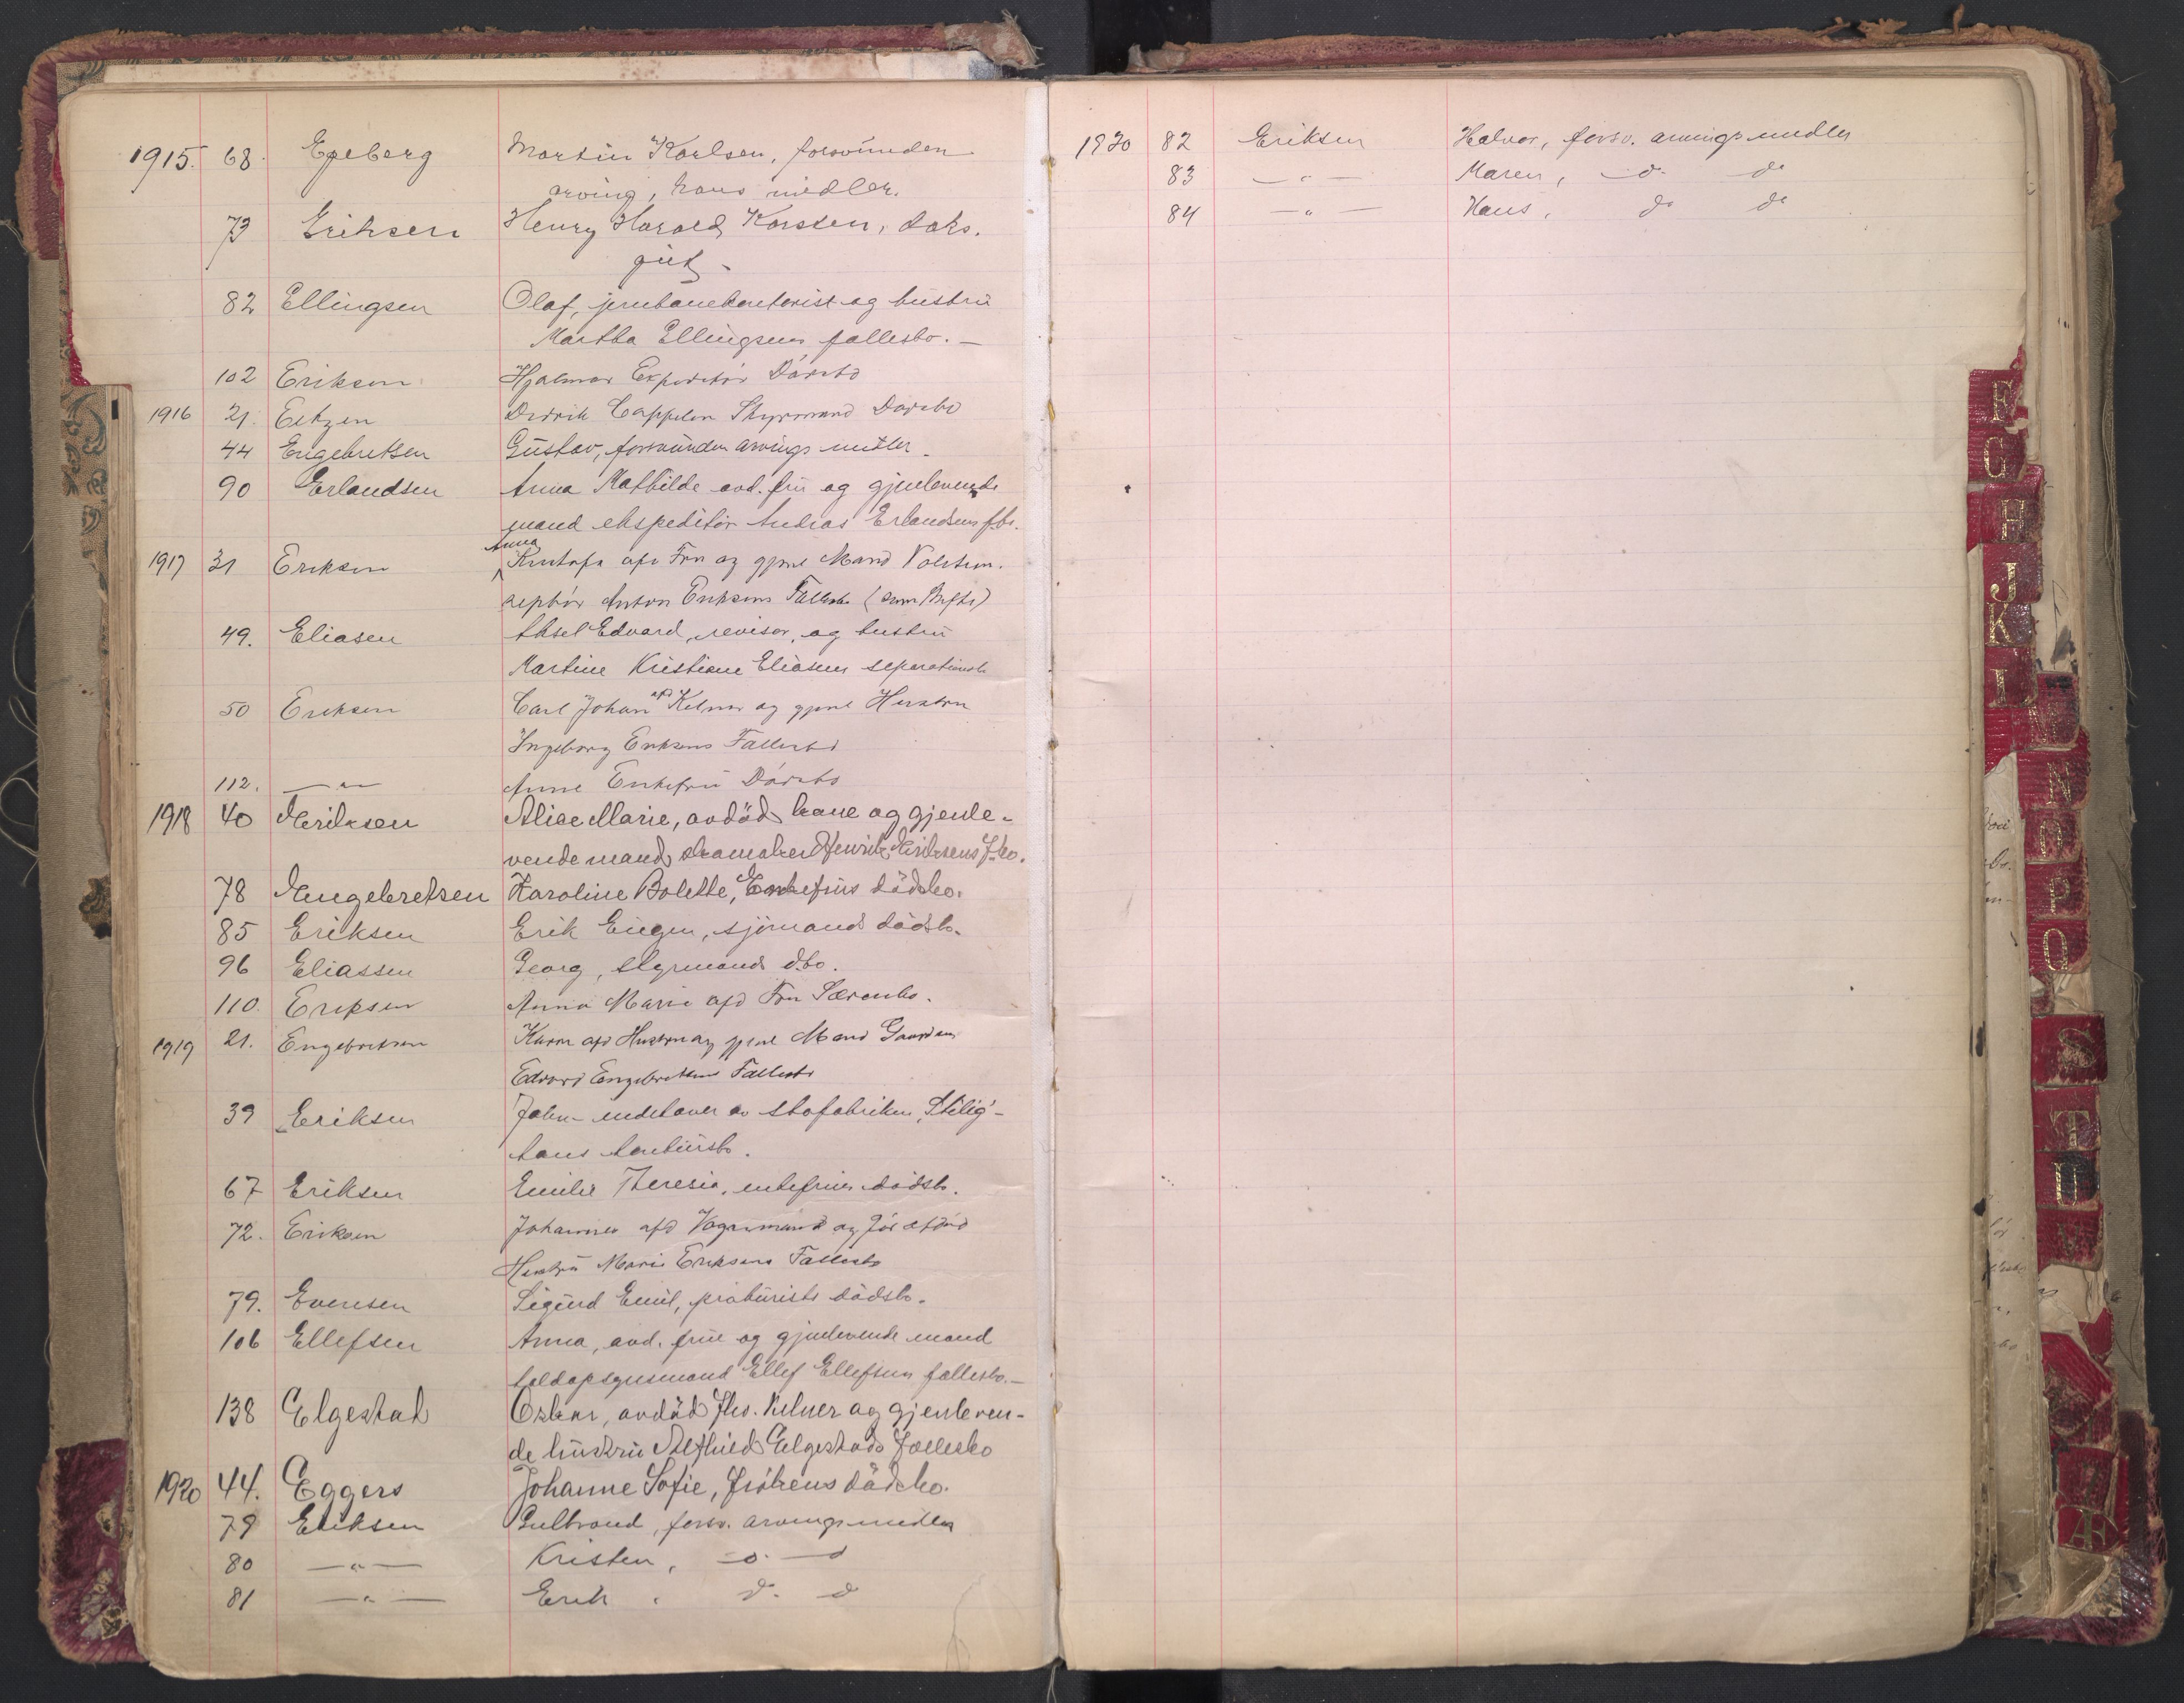 1915. 68. Egeberg Martin Karlsen, forsvunden
arving, hans midler.
73 Eriksen Henry Harald Karsten, daks.
gut.
82 Ellingsen Olaf, jernbanekontorist og hustru
Martha Ellingsens fallesbo. —
102 Eriksen Hjalmar Expeditör Dödsbo
1916 21. Eitzen Didrik Cappelen Styrmand Dödsbo
44 Engebretsen Gustav, forsvunden arvings midler.
90 Erlandsen Anna Mathilde avd. fru og gjenlevende
mand ekspeditör Andreas Erlandsens fbo.
Anna
1917 31 Eriksen afd Fru og gjenl Mand
Anton Eriksens Fallesbo
49. Eliasen Aksel Edvard, revisor, og hustru
Martine Kristiane Eliasens separationsbo
50 Eriksen Carl Johan afd Kelner og gjenl Hustru
Ingeborg Eriksens Fallesbo
112. — " — Anne Enkefru Dödsbo
1918 40 Eriksen Alice Marie, avdöd kone og gjenle-
vende mand skomaker Henrik Eriksens f.bo.
78 Engebretsen Karoline Bolette, Enkefrus dödsbo.
85 Eriksen Erik Eugen, sjömands dödsbo.
96 Eliassen Georg, styrmands dbo.
110. Eriksen Anna Marie afd Fru Særombo.
1919 21. Engebretsen Karen afd Hustru og gjenl Mand
Edvard Engebretsens Fallesbo
39 Eriksen John indehaver av skofabriken "Stilig" -
hans konkursbo.
67 Eriksen Emilie Theresia, enkefrues dödsbo.
72. Eriksen Johannes afd Vognmand og
Hustru Marie Eriksens Fallesbo
79. Evensen Sigurd Emil, prokurists dödsbo.
106 Ellefsen Anna, avd. frue og gjenlevende mand
toldopsynsmand Ellef Ellefsens fallesbo. —
138 Elgestad Oskar, avdöd fhv. Kelner og gjenleven-
de hustru Alfhild Elgestads Fællesbo
1920 44. Eggers Johanne Sofie, frökens dödsbo.
79 Eriksen Gulbrand, forsv. arvings midler
80 — " — Kristen, do. do
81 — " — Erik, do. do
1920 82 Eriksen Halvor, forsv. arvings midler
83 — " — Maren, do. do
84 — " — Hans, do do
F
G
H
J
K
L
N
O
P
Q
S
T
U
Æ